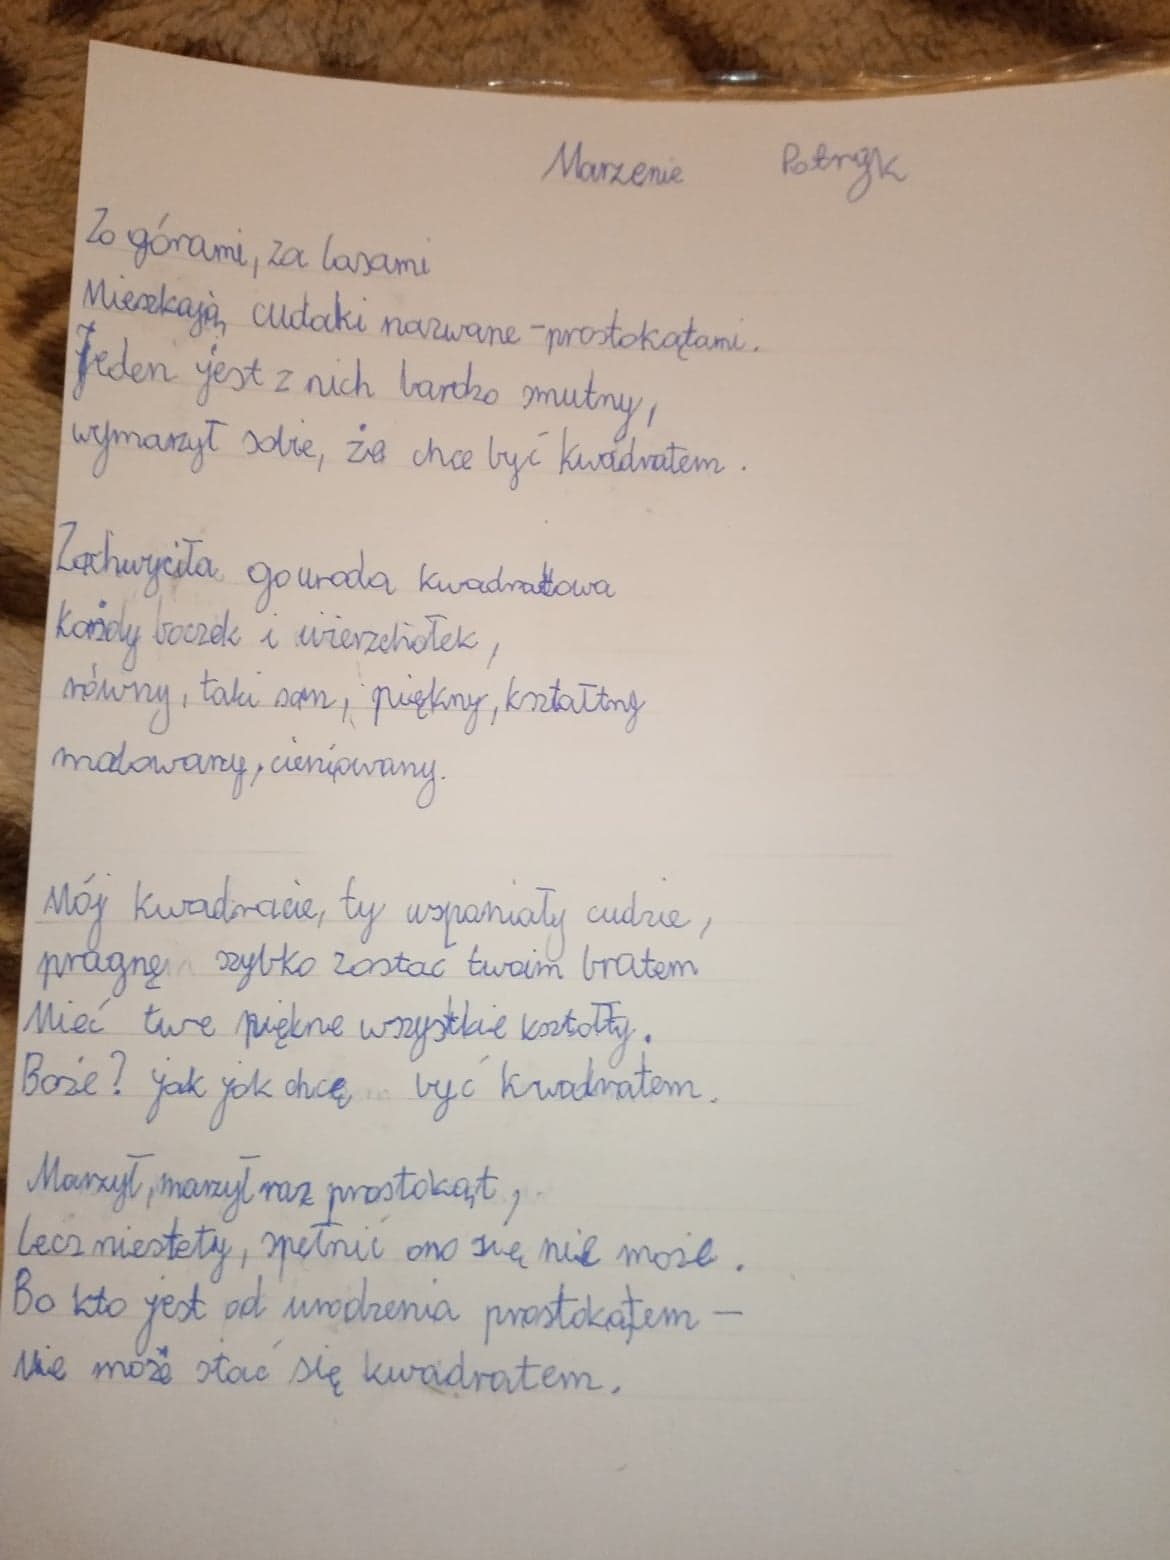 Marzenie Patryk
Za górami, za lasami
Mieszkają cudaki nazwane - prostokątami.
Jeden jest z nich bardzo smutny,
wymarzył sobie, że chce być kwadratem.
Zachwyciła go uroda kwadratowa
Każdy boczek i wierzchołek,
równy, taki sam, piękny, kształtny
malowany, cieniowany.
Mój kwadracie, ty wspaniały cudzie,
pragnę szybko zostać twoim bratem
Mieć twe piękne wszystkie kształty.
Boże? jak jak chcę być kwadratem.
Marzył, marzył raz prostokąt,
lecz niestety, spełnić ono się nie może.
Bo kto jest od urodzenia prostokątem -
Nie może stać się kwadratem.